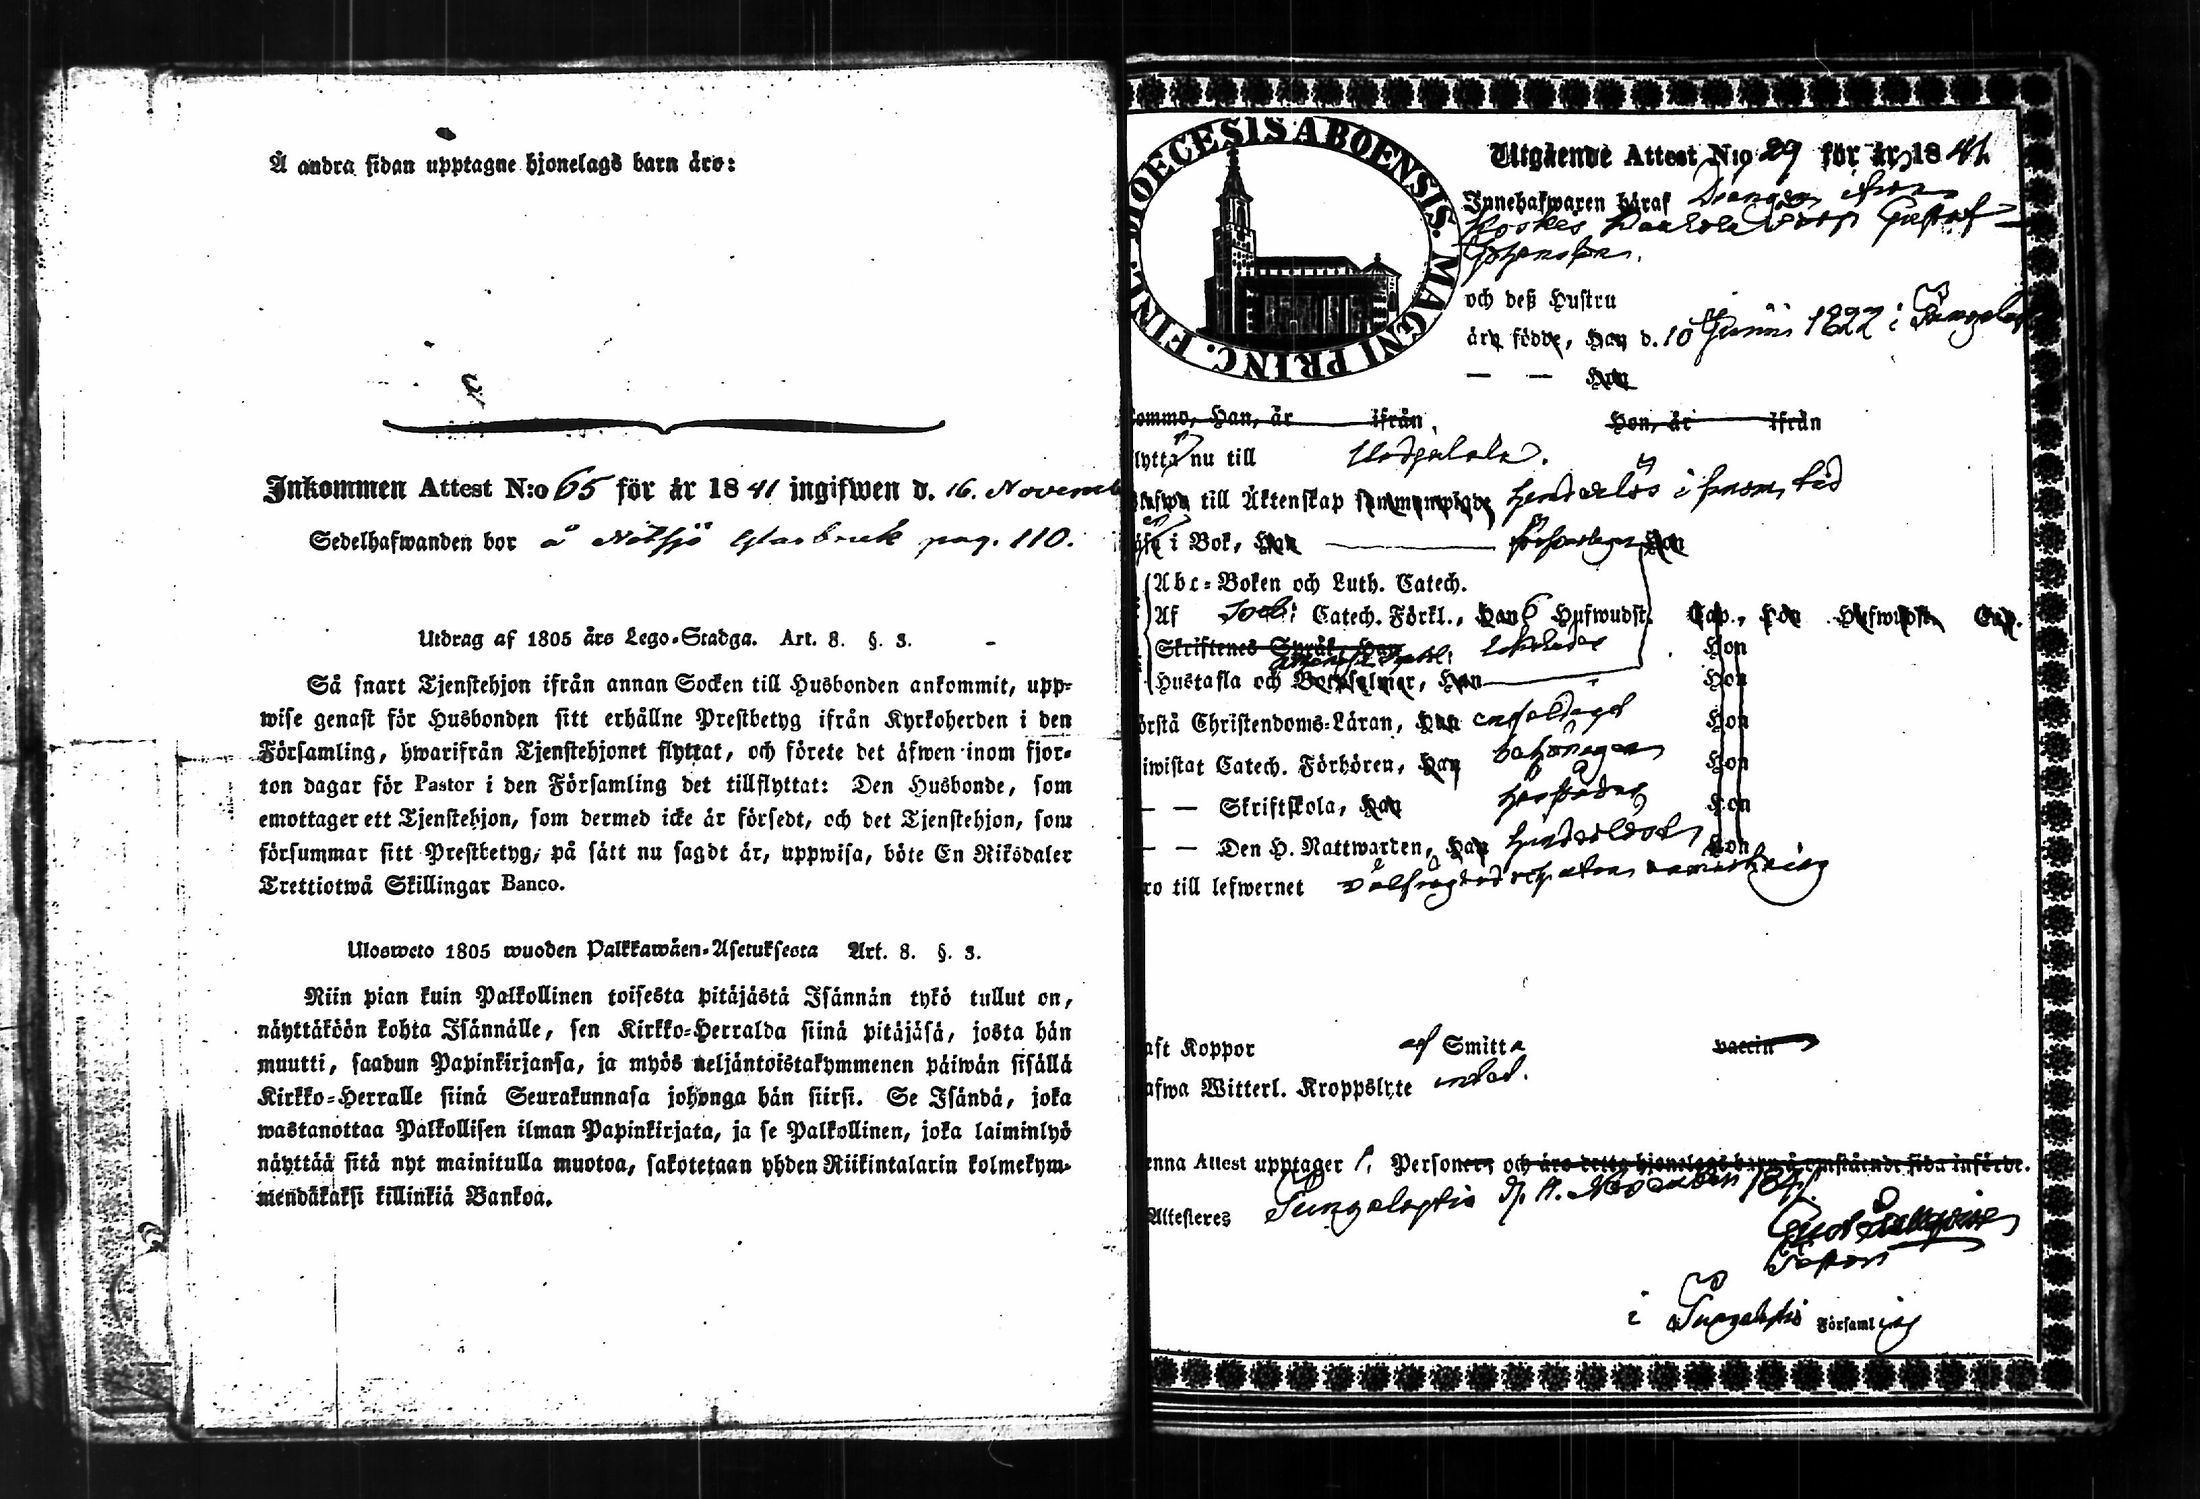 Å andra sidan upptagne hjonelags barn äro:
Inkommen Attest N:o 65 för år 1841 ingifwen d. 16. Novemb
Sedelhafwanden bor å Nötsjö Glasbruk pag. 110.
Utdrag af 1805 års Lego-Stadga. Art. 8. §. 3.
Så snart Tjenstehjon ifrån annan Socken till Husbonden ankommit, upp-
wise genast för Husbonden sitt erhållne Prestbetyg ifrån Kyrkoherden i den
Församling, hwarifrån Tjenstehjonet flyttat, och förete det äfwen inom fjor-
ton dagar för Pastor i den Församling det tillflyttat: Den Husbonde, som
emottager ett Tjenstehjon, som dermed icke är försedt, och det Tjenstehjon, som
försummar sitt Prestbetyg, på sätt nu sagdt är, uppwisa, böte En Riksdaler
Trettiotwå Skillingar Banco.
Ulosweto 1805 wuoden Palkkawäen-Asetuksesta Art. 8. §. 3.
Niin pian kuin Palkollinen toisesta pitäjästä Isännän tykö tullut on,
näyttäköön kohta Isännälle, sen Kirkko-Herralda siinä pitäjäsä, josta hän
muutti, saadun Papinkirjansa, ja myös neljäntoistakymmenen päiwän sisällä
Kirkko-Herralle siinä Seurakunnasa johonga hän siirsi. Se Isändä, joka
wastanottaa Palkollisen ilman Papinkirjata, ja se Palkollinen, joka laiminlyö
näyttää sitä nyt mainitulla muotoa, sakotetaan yhden Riikintalarin kolmekym-
mendäkaksi killinkiä Bankoa.
DIOECESIS ABOENSIS. MAGNI PRINC. FINL.
Utgående Attest N:o 29 för år 1841.
Innehafwaren häraf Drängen ifrån
Gustaf
Johansson.
och deß Hustru
äro födde, Han d. 10 Junii 1822 i
— — Hon
komme, Han, är ifrån Hon, är ifrån
lytta nu till Urdjala.
till Äktenskap sammanwigde hinderlös i
i Bok, Han försvarligen Hon
Abc-Boken och Luth. Catech.
Af Catech. Förkl., Han 6 Hufwudst. Cap., Hon Hufwudst. Cap.
Skriftenes Språk, Han Hon
Hustafla och Botpsalmer, Han Hon
örstå Christendoms-Läran, Han enfaldigt Hon
iwistat Catech. Förhören, Han behörigen Hon
— — Skriftskola, Han Hon
— — Den H. Nattwarden, Han Hon
ro till lefwernet välfrägdad och utan anmärkning
aft Koppor af Smitta vaccin
afwa Witterl. Kroppslyte intet.
enna Attest upptager 1. Personer, och äro detta hjonelags barn å omstående sida införde.
Attesteres November 1841.
Pastor
i Församling